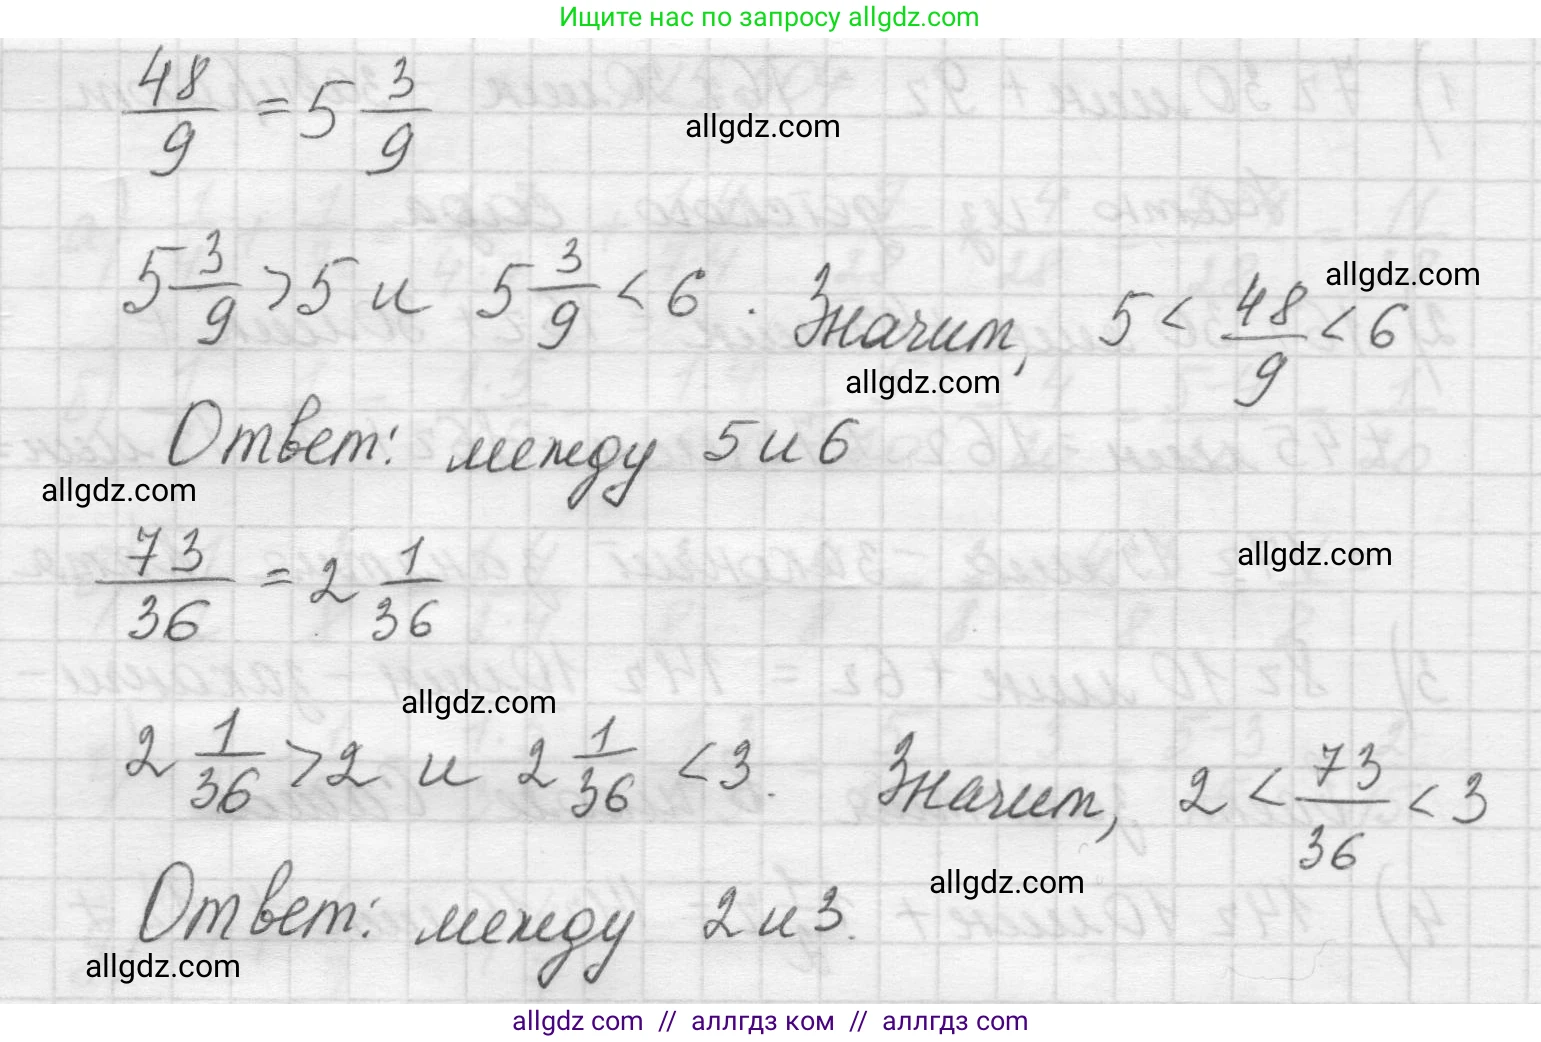 Ищите нас по запросу allgdz.com
48/9 = 5 3/9
allgdz.com
5 3/9 > 5 и 5 3/9 < 6. Значит, 5 < 48/9 < 6
allgdz.com
allgdz.com
Ответ: между 5 и 6
allgdz.com
73/36 = 2 1/36
allgdz.com
allgdz.com
2 1/36 > 2 и 2 1/36 < 3. Значит, 2 < 73/36 < 3
allgdz.com
Ответ: между 2 и 3.
allgdz.com
allgdz com // аллгдз ком // аллгдз com